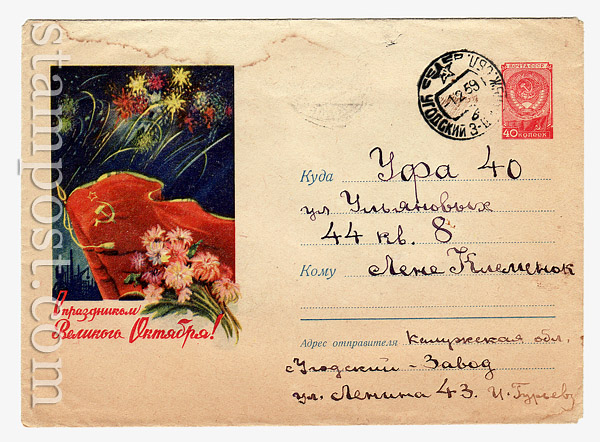 stampost.com
ПОЧТА СССР
40 КОПЕЕК
УГОДСКИЙ З-Д
Куда Уфа 40
ул Ульяновых
44 кв. 8
Кому Лене Клеменок
С праздником
Великого Октября!
Адрес отправителя Калужская обл.
Угодский - Завод
ул. Ленина 43. И. Гурьев